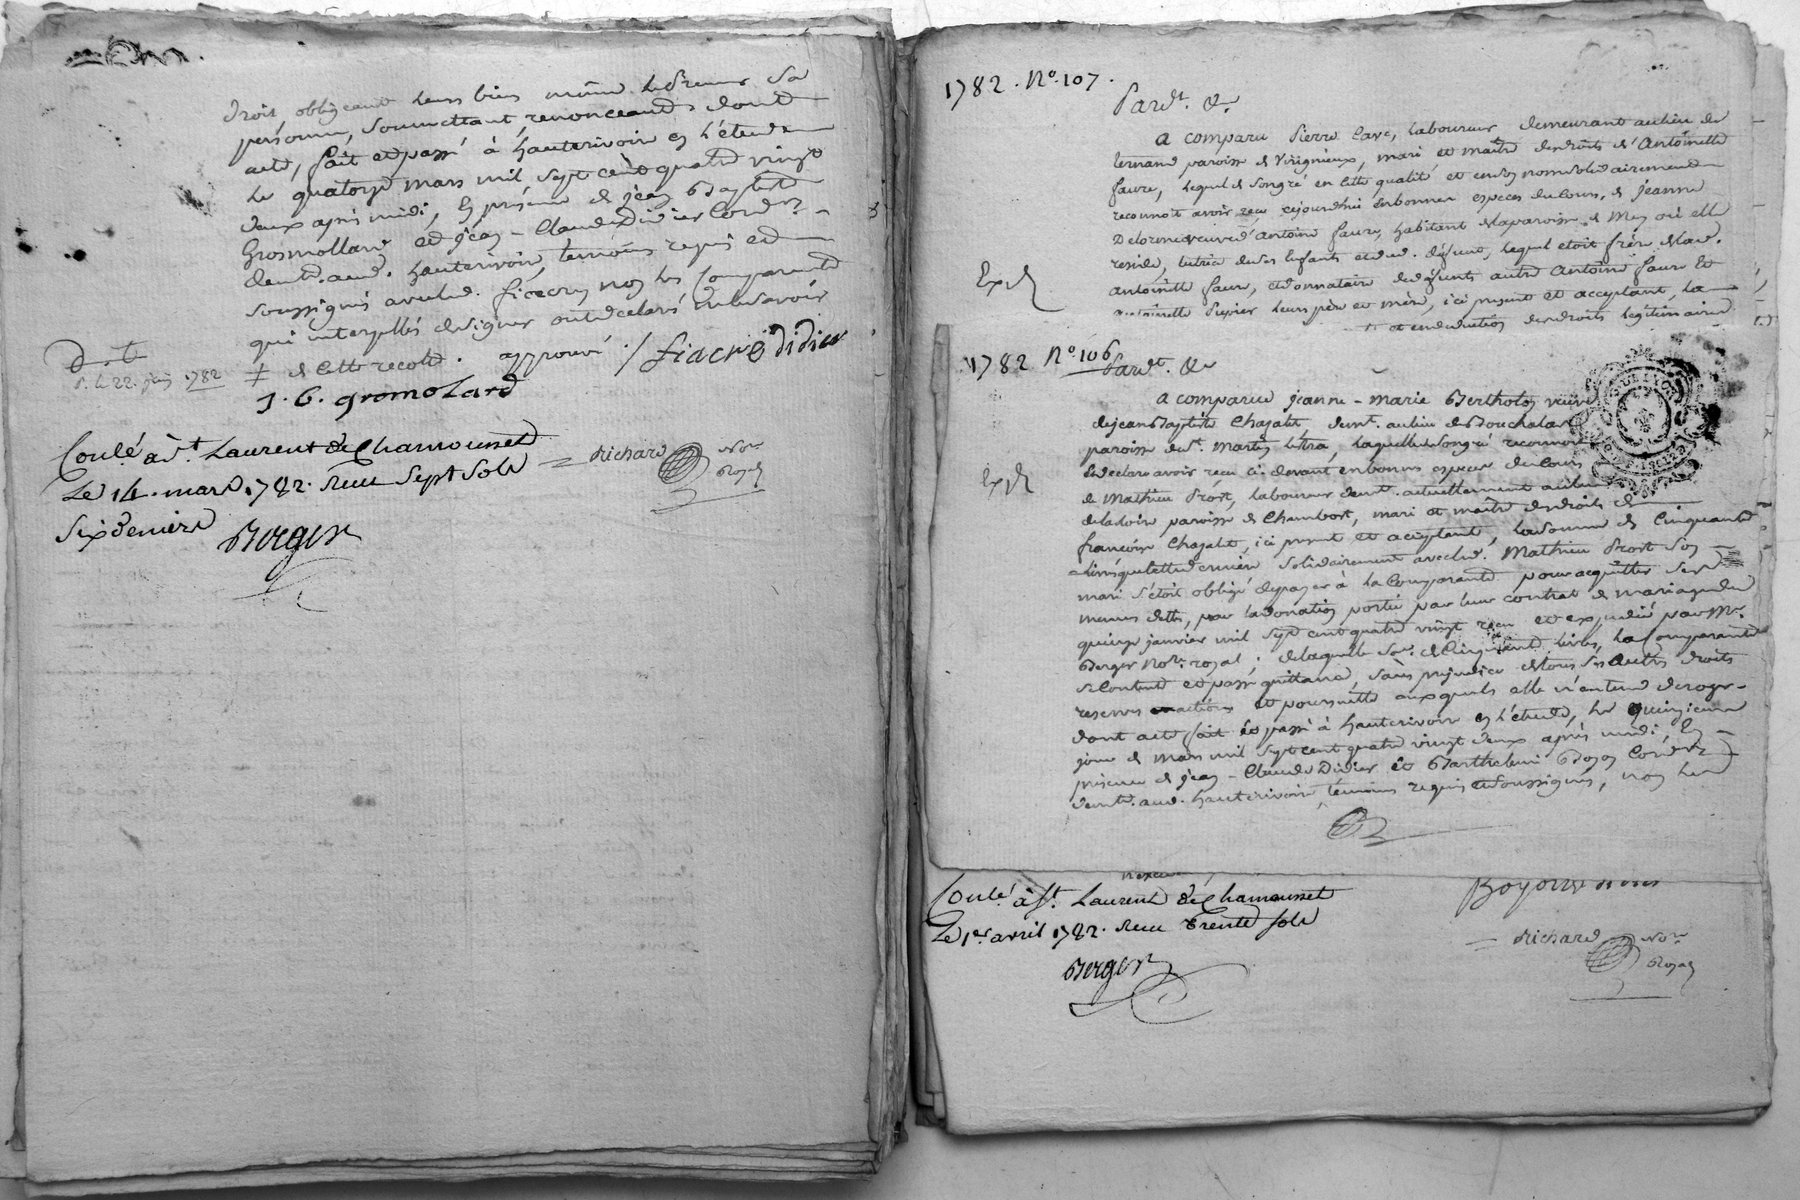 droit, obligeant leurs biens même le preneur sa
personne, soumettant, renonceant dont
acte, fait et passé à hauterivoire en l'étude
le quatorze mars mil sept cent quatre vingt
deux après midi, en présence de jean Baptiste
Grosmollard et jean - Claude Didier Cord.r
demt. aud. hauterivoire témoins requis et
soussignés avec led. fiacre, non les comparants
qui interpellés de signer ont declaré ne le savoir
‡ de cette recolte. approuvé ./ fiacre didier
D. te
d. le 22. juin 1782
J. B. gromolard
Conlé. à St. Laurent de Chamousset
Le 14. mars 1782. Reçu Sept Sols
Six deniers
= Richard Nore
Royal
Berger
1782. No. 107.
Pardt. &a
a comparu Pierre Cave, Laboureur demeurant au lieu de
paroisse de Virignieux, mari et maître des droits d'Antoinette
faure, lequel de son gré en cette qualité et en son nom solidairement
reconnoit avoir reçu cejourdhui en bonnes especes du cours, de jeanne
Delorme veuve d'Antoine faure, habitant de la paroisse de Meys où elle
reside, tutrice de ses enfants et dud. défunt, lequel etoit frère de lad.
Expé
antoinette faure, et donnataire de défunts autre Antoine faure et
antoinette leurs père et mère, ici present et acceptant, la
et en deduction des droits légitimaires
1782 No. 106
Pardt. &a
a comparue jeanne - Marie Bertholon veuve
de jean Baptiste Chazalet, demt. au lieu de Bouchala
paroisse de St. Martin Lestra, laquelle de son gré reconnoit
et declare avoir reçu ci devant en bonnes especes du cours
Expé
de Mathieu Prost, laboureur demt. actuellement au lieu
de la loire paroisse de Chambost, mari et maître des droits de
françoise Chazalet, ici present et acceptant, la somme de Cinquante
livres que cette derniere solidairement avec led. Mathieu Prost son
mari s'étoit obligé de payer à la Comparante pour acquitter ses
menues dettes, par la donation portée par leur contrat de mariage du
quinze janvier mil sept cent quatre vingt reçu et expedié par Me.
Berger Nore. royal; de laquelle some. de Cinquante livres, la comparante
se contente et passe quittance, sans prejudice de tous ses autres droits
reserves actions et poursuittes auxquels elle n'entend deroger -
dont acte fait et passé à hauterivoire en l'étude, le quinzieme
jour de mars mil sept cent quatre vingt deux après midi, en
présence de jean - Claude Didier et Barthelemi Boyon Cordr
demt. aud. hauterivoire témoins requis et soussignés, non les
Conlé. à St. Laurent de Chamousset
Le 1er. avril 1782. Reçu Trente sols
Berger
= Richard Nore
Royal